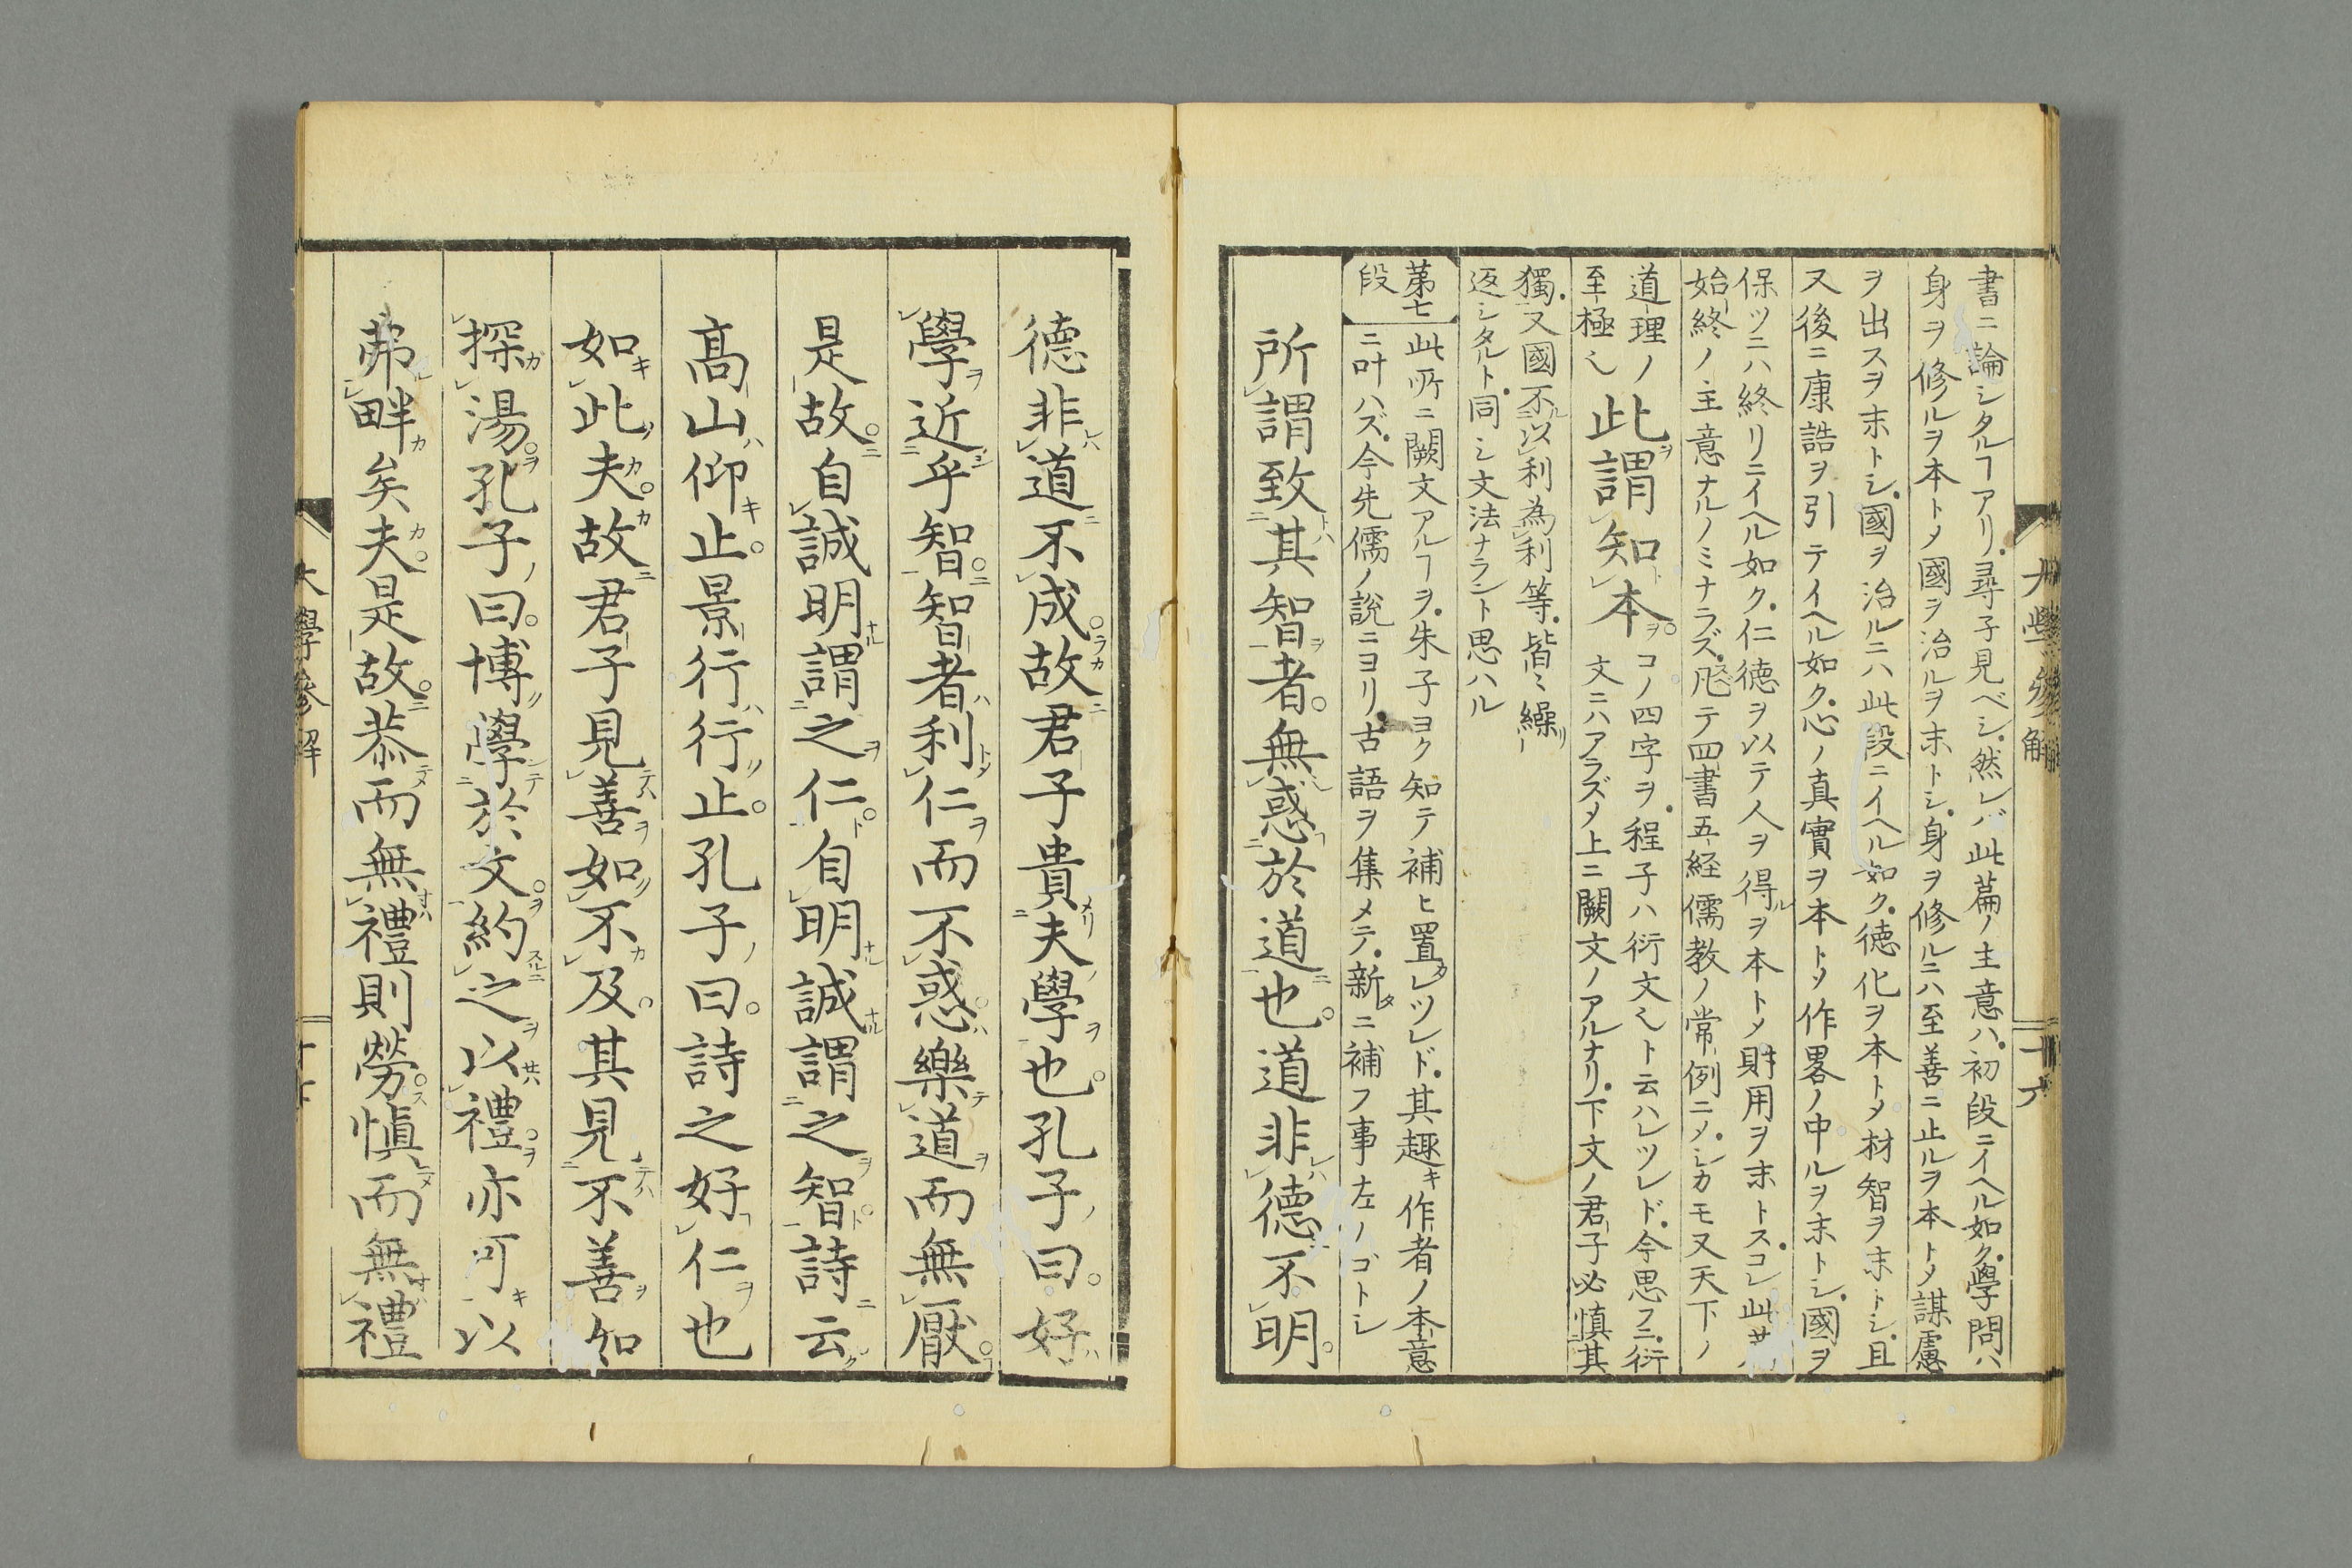 書ニ論シタルヿアリ尋子見ベシ然レバ此篇ノ主意ハ初段ニイヘル如ク學問ハ
身ヲ修ルヲ本トメ國ヲ治ルヲ末トシ身ヲ修ルニハ至善ニ止ルヲ本トメ謀慮
ヲ出スヲ末トシ國ヲ治ルニハ此段ニイヘル如ク徳化ヲ本トメ材智ヲ末トシ且
又後ニ康誥ヲ引テイヘル如ク心ノ真實ヲ本トメ作畧ノ中ルヲ末トシ國ヲ
保ツニハ終リニイヘル如ク仁徳ヲ以テ人ヲ得ルヲ本トメ財用ヲ末トスコレ此
始終ノ主意ナルノミナラズ凡テ四書五経儒教ノ常例ニメシカモ又天下ノ
道理ノ
至極也
此謂知本
コノ四字ヲ程子ハ衍文也ト云ハレツレド今思フニ衍
文ニハアラズメ上ニ闕文ノアルナリ下文ノ君子必慎其
獨又國不以利為利等皆々繰リ
返シタルト同シ文法ナラント思ハル
第七
段
此所ニ闕文アルヿヲ朱子ヨク知テ補ヒ置レツレド其趣キ作者ノ本意
ニ叶ハズ今先儒ノ説ニヨリ古語ヲ集メテ新タニ補フ事左ノゴトシ
所謂致其智者無惑於道也道非徳不明
大學參解
十六
德非道不成故君子貴夫學也孔子曰好
學近乎智智者利仁而不惑樂道而無厭
是故自誠明謂之仁自明誠謂之智詩云
高山仰止景行行止孔子曰詩之好仁也
如此夫故君子見善如不及其見不善如
探湯孔子曰博學於文約之以禮亦可以
弗畔矣夫是故恭而無禮則勞慎而無禮
大學參解